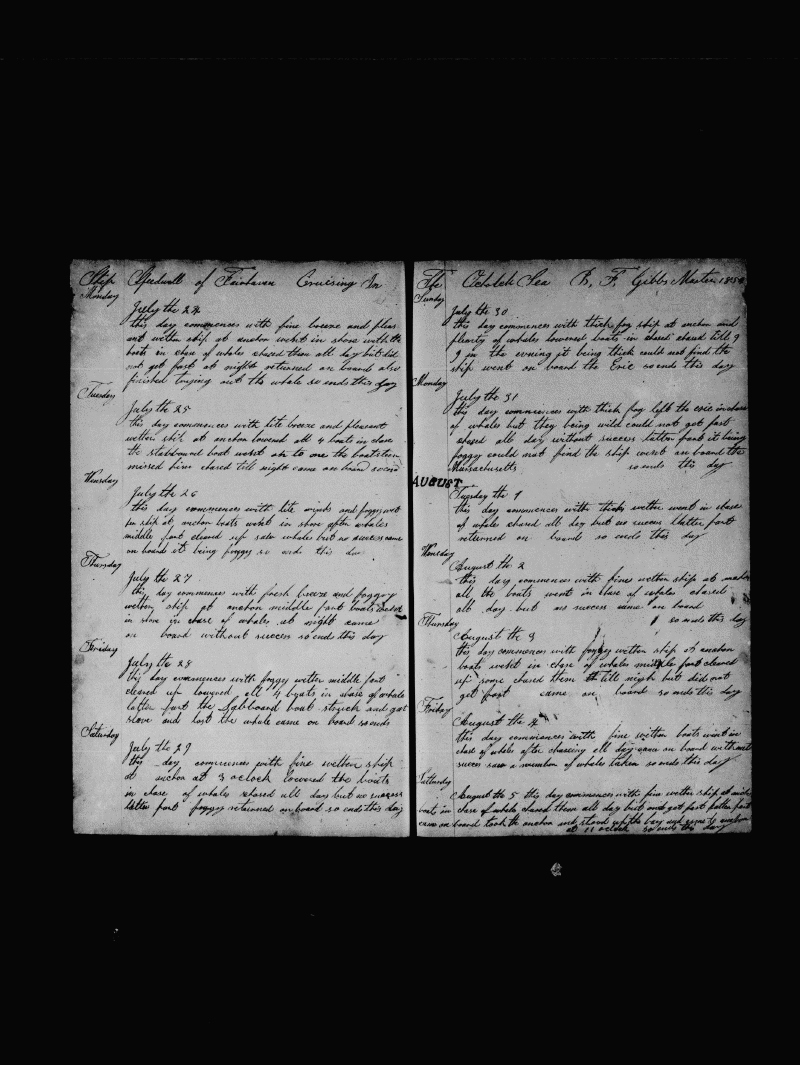 Ship Speedwell of Fairhaven Cruising In
Monday
July the 24
this day commences with fine breeze and pleas
ant wether ship at anchor went in shore with the
boats in chase of whales chased them all day but did
not get fast at night returned on board also
finished trying out the whale so ends this day
Tuesday
July the 25
this day commences with lite breeze and pleasent
wether ship at anchor lowered all 4 boats in chase
the stabboard boat went on to one the boatsteern
missed him chased till night came on board
Wensday
July the 26
this day commences with lite winds and foggy wet
her ship at anchor boats went in shore after whales
middle part cleard up saw whales but no success came
on board it being foggy so ends this day
Thursday
July the 27
this day commences with fresh breeze and foggy
wether ship at anchor middle part boats
in shore in chase of whales at night came
on board without success so ends this day
Friday
July the 28
this day commences with foggy wether middle part
cleared up lowered all 4 boats in chase of whale
latter part the labboard boat struck and got
stove and lost the whale came on board so ends
Saturday
July the 29
this day commences with fine wether ship
at anchor at 3 oclock lowered the boats
in chase of whales chased all day but no success
latter part foggy returned on board so ends this day
The Ochotek Sea B. F. Gibbs Master
Sunday
July the 30
this day commences with thick fog ship at anchor and
plenty of whales lowered boats in chase chased till 9
9 in the evning it being thick could not find the
ship went on board the Erie so ends this day
Monday
July the 31
this day commences with thick fog left the erie in chase
of whales but they being wild could not get fast
chased all day without success latter part it being
foggy could not find the ship went on board the
Massachusetts so ends this day
AUGUST
Tuesday the 1
this day commences with thick wether went in chase
of whales chased all day but no succes latter part
returned on board so ends this day
Wensday
August the 2
this day commences with fine wether ship at anchor
all the boats went in chase of whales chased
all day but no success came on board
so ends this day
Thursday
August the 3
this day commences with foggy wether ship at anchor
boats went in chase of whales middle part cleared
up some chased them till nigh but did not
get fast came on board so ends this day
Friday
August the 4
this day commences with fine wether boats went in
chase of whales after chasing all day came on board without
succes saw a number of whales taken so ends this day
Saturday
August the 5 this day commences with fine wether ship at anchor
boats in chase of whales chased them all day but
came on board took the anchor and stood up the bay and came to anchor
at 11 oclock so ends this day